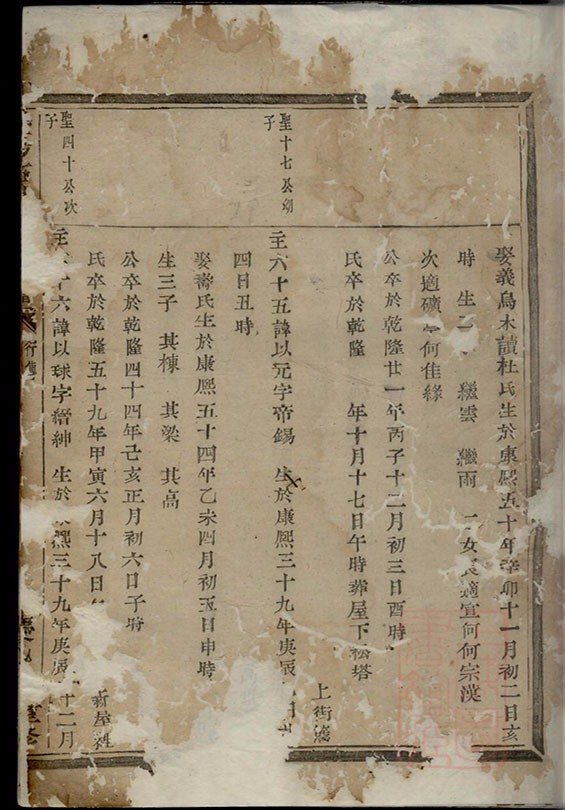 娶義烏木讀杜氏生於康熙五十年辛卯十一月初二日亥
時 生二 繼雲 繼雨 二女長適宣何何宗漢
次適礦 何佳緣
公卒於乾隆廿一年丙子十二月初三日酉時
氏卒於乾隆 年十月十七日午時葬屋下松塔
聖十七公幼
子
主六十五諱以元字帝錫 生於康熙三十九年庚辰 上街濺
四日丑時
娶壽氏生於康熙五十四年乙未四月初五日申時
生三子 其棟 其梁 其高
公卒於乾隆四十四年己亥正月初六日子時
氏卒於乾隆五十九年甲寅六月十八日 新屋
聖四十公次
子
主 十六諱以球字縉紳 生於 熙三十九年庚辰 十二月
行傳